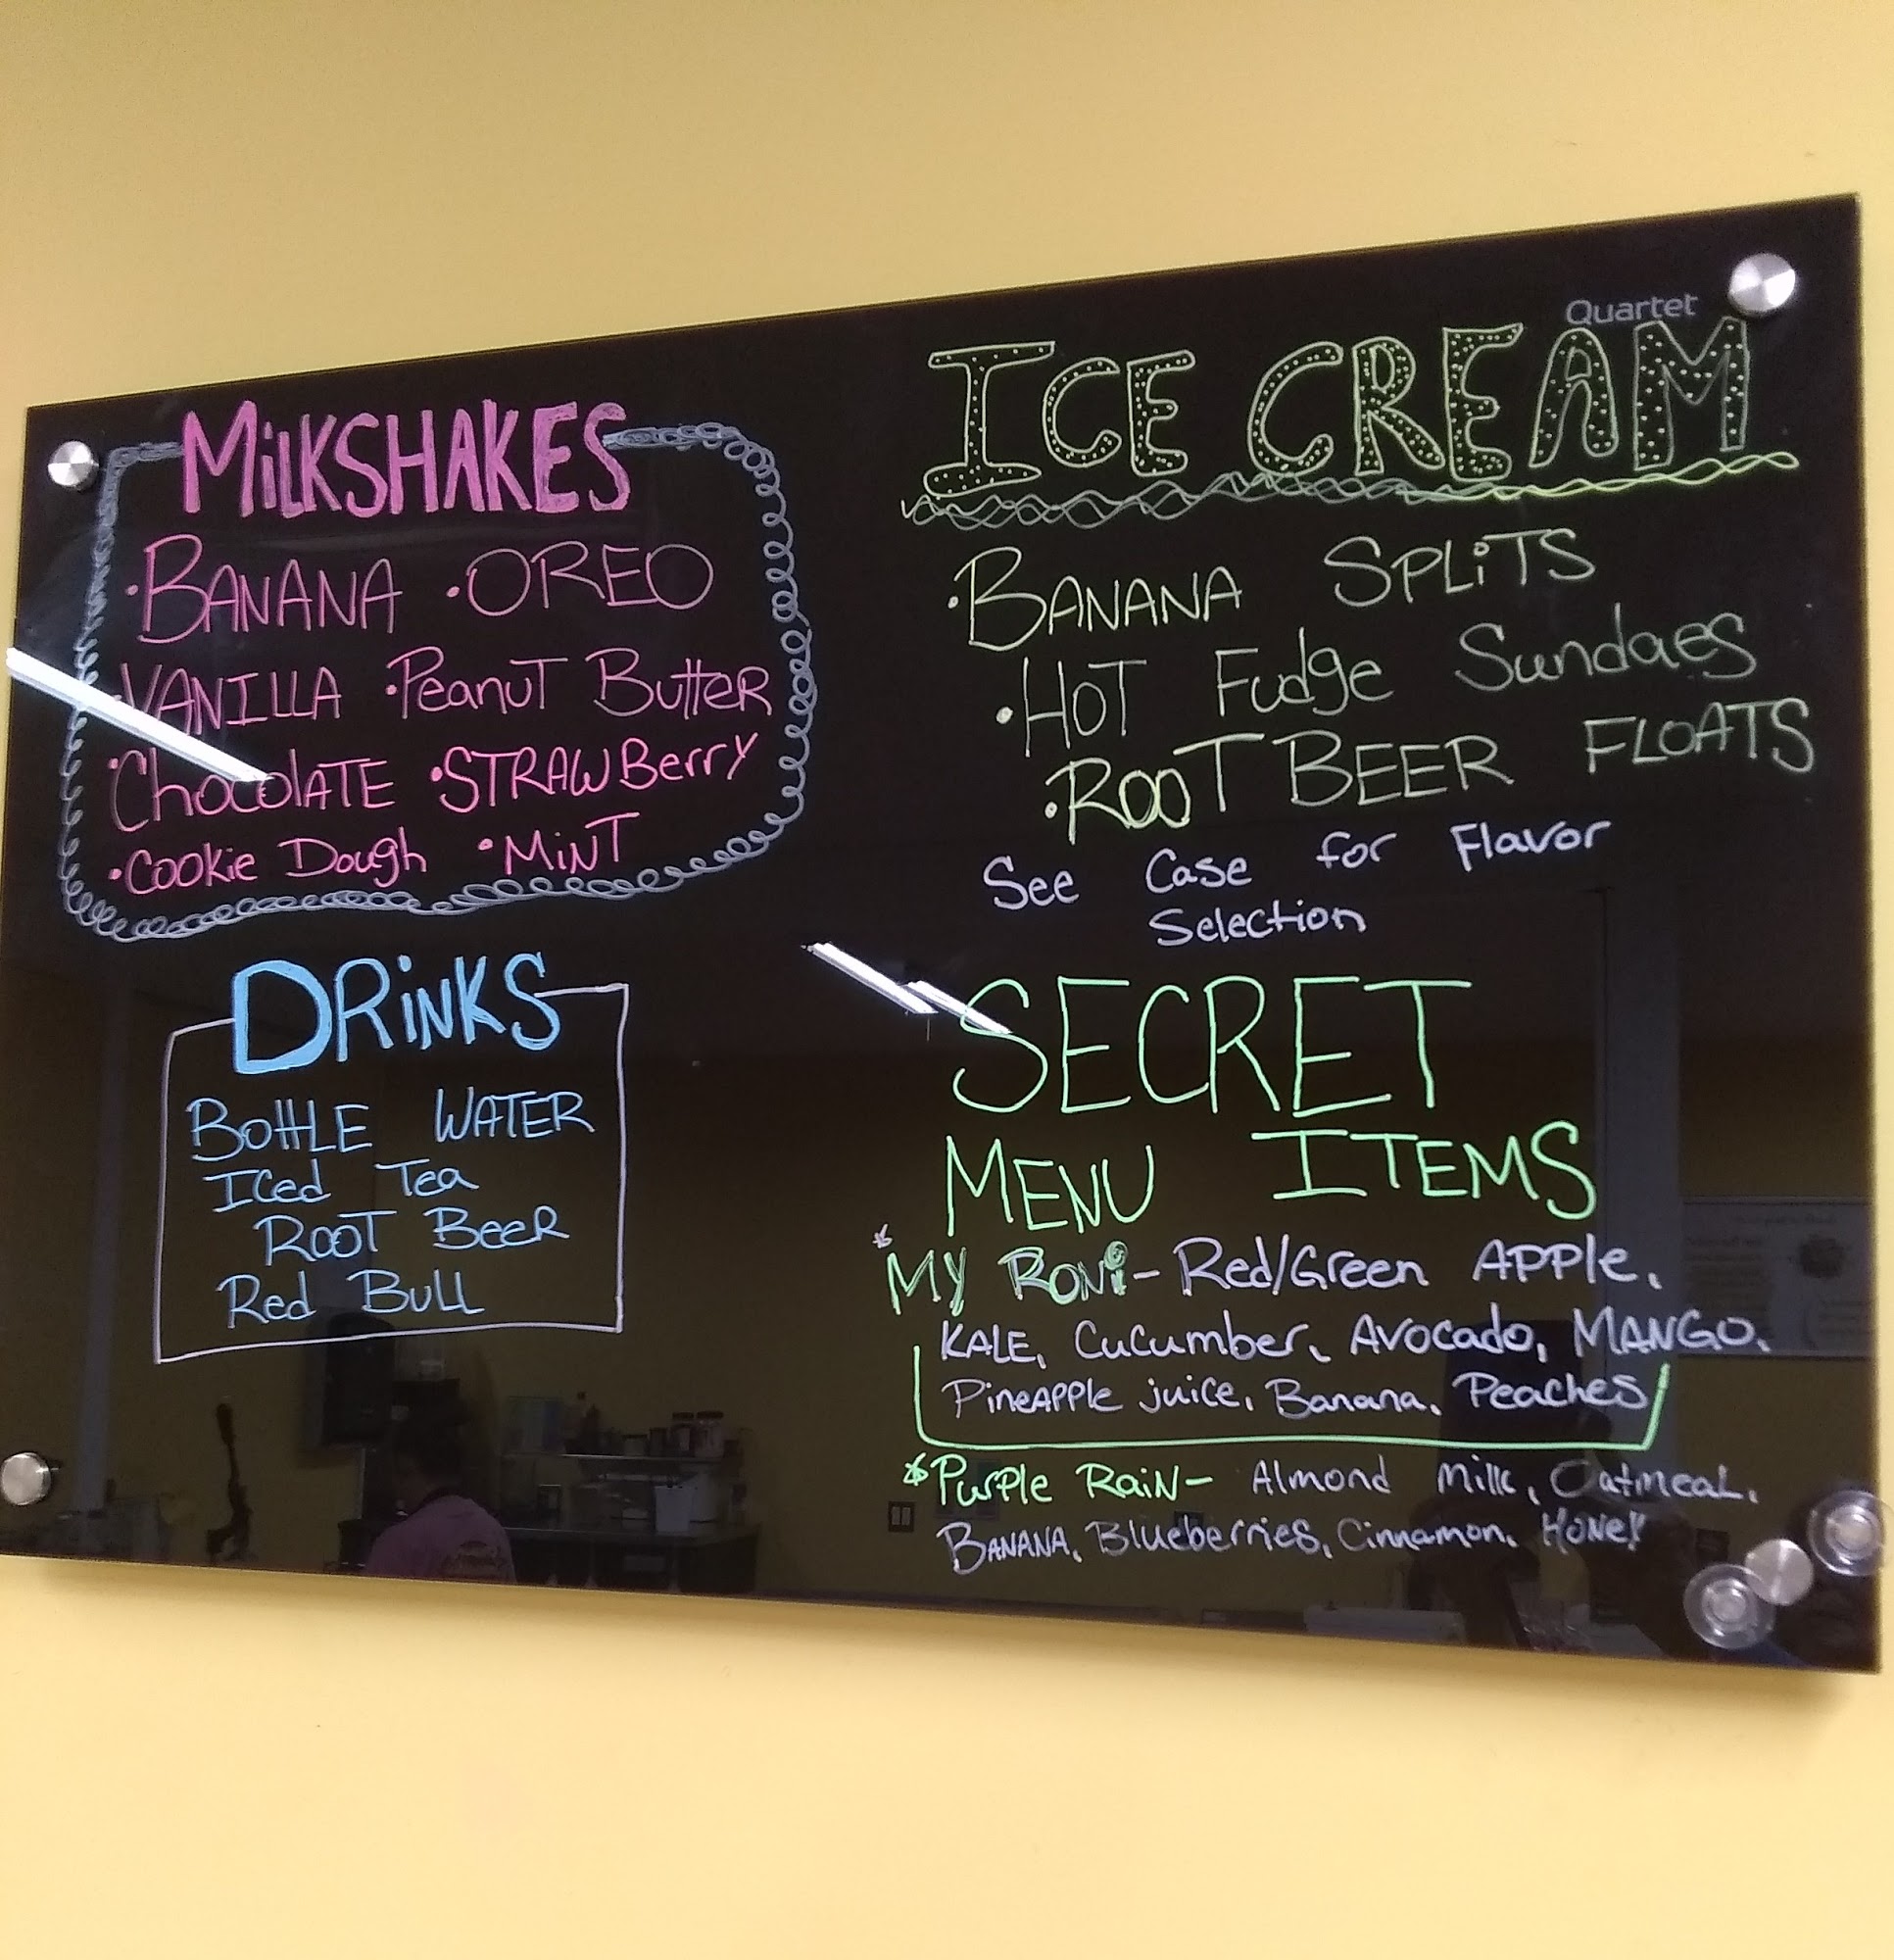 Quartet
MiLKSHAKES
·BANANA ·OREO
·VANILLA ·Peanut Butter
·ChocolATE ·STRAWBerry
·Cookie Dough ·MiNT
DRiNKS
BOttLE WATER
ICed Tea
ROOT BeeR
Red BULL
ICE CREAM
·BANANA SPLiTS
·HOT Fudge Sundaes
·ROOT BEER FLOATS
See Case for Flavor
Selection
SECRET
MENU ITEMS
*MY RONi- Red/Green APPle,
KALE, CuCumber, Avocado, MANGO,
PineAPPle juice, Banana, Peaches
*Purple RaiN- Almond Milk, Oatmeal,
BANANA, Blueberries, Cinnamon, HONeY